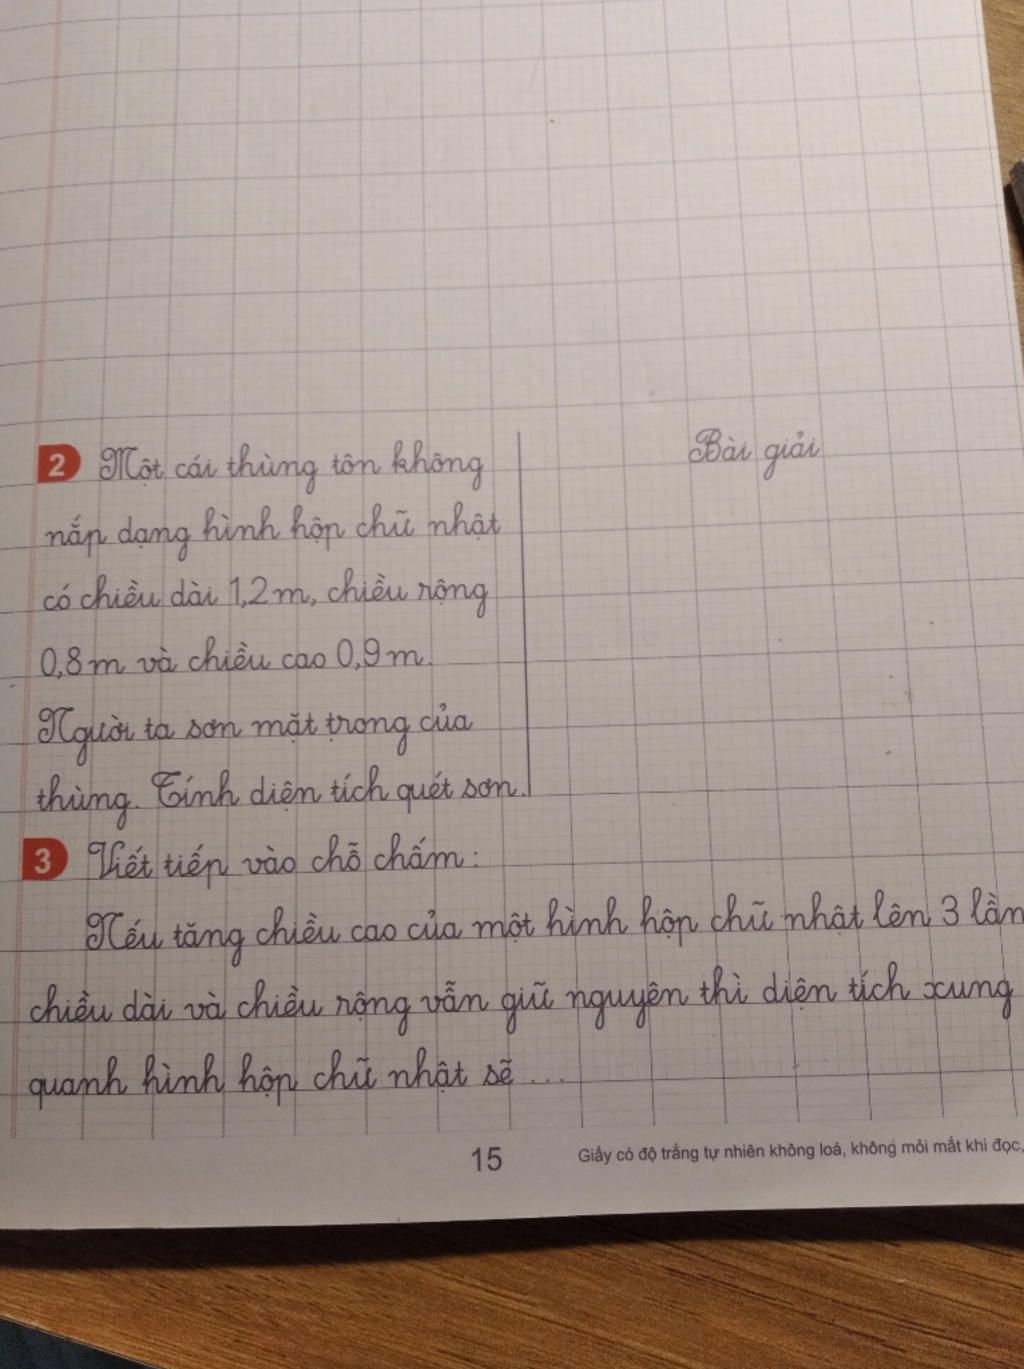 2 Một cái thùng tôn không
Bài giải
nắp dạng hình hộp chữ nhật
có chiều dài 1,2 m, chiều rộng
0,8 m và chiều cao 0,9 m.
Người ta sơn mặt trong của
thùng. Tính diện tích quét sơn.
3 Viết tiếp vào chỗ chấm:
Nếu tăng chiều cao của một hình hộp chữ nhật lên 3 lần
chiều dài và chiều rộng vẫn giữ nguyên thì diện tích xung
quanh hình hộp chữ nhật sẽ ...
15
Giấy có độ trắng tự nhiên không loá, không mỏi mắt khi đọc,